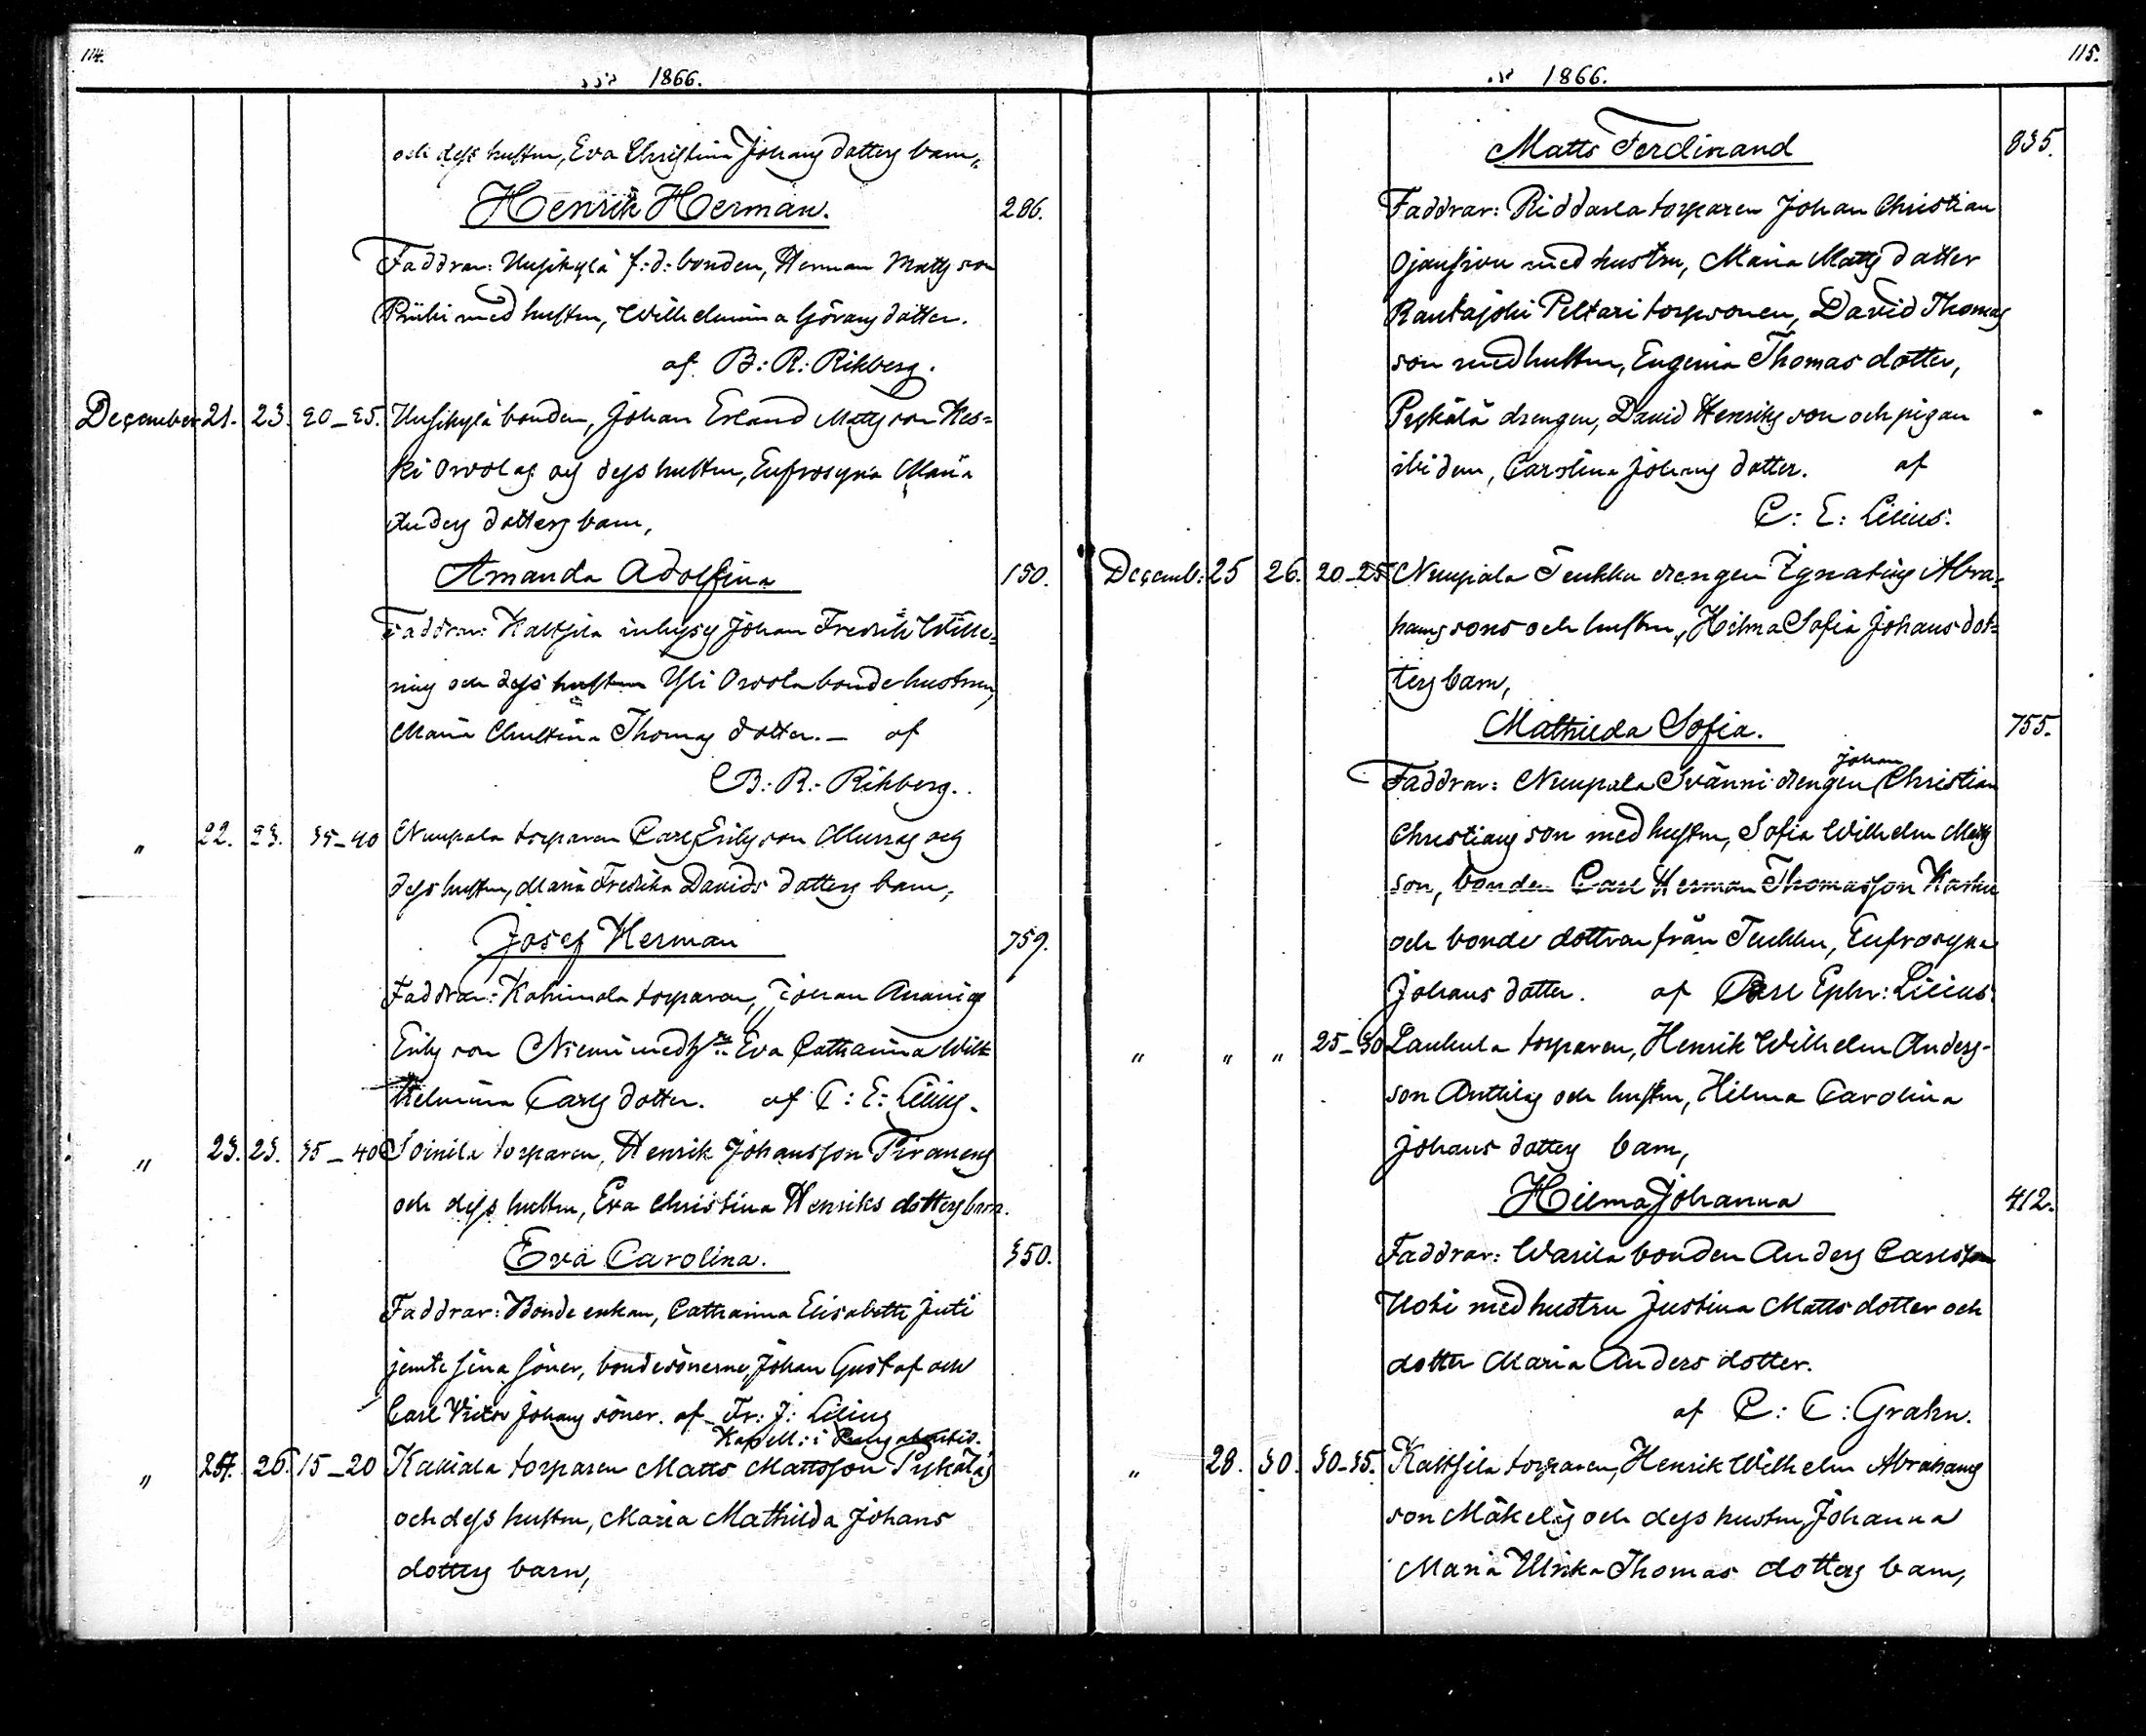 114.
1866.
och dess hustru, Eva Christina Johans dotters barn,
Henrik Herman. 286.
Faddrar: Uusikylä f:d: bonden, Herman Matts son
Prihi med hustru, Wilhelmina Görans dotter.
af B: R: Rihberg.
December 21. 23. 30_35. Uusikylä bonden, Johan Erland Matts son Kes=
ki Orvolas och dess hustru, Eufrosyna Maria
Anders dotters barn,
Amanda Adolfina 150.
Faddrar: Kaltsila inhyses Johan Fredrik Wille=
nius och dess hustru Yli Orvola bonde hustrun,
Maria Christina Thomas dotter. _ af
B: R: Rihberg.
" 22. 23. 35_40 Nuupala torparen Carl Eriks son Murras och
dess hustru, Maria Fredrika Davids dotters barn,
Josef Herman 759.
Faddrar: Kohimala torparen, Johan Ananias
Eriks son Niemi med hu: Eva Catharina Wil=
helmina Carls dotter. af C: E: Lilius.
" 23. 23. 35_40 Soinila torparen, Henrik Johansson Piranens
och dess hustru, Eva Christina Henriks dotters barn.
Eva Carolina. 350.
Faddrar: Bonde enkan, Catharina Elisabeth Juti
jemte sina söner, bondesönerne, Johan Gustaf och
Carl Victor Johans söner. af Fr: J: Lilius
Kapell: i
" 24. 26. 15_20 Kakiala torparen Matts Mattsson Pyskäläs
och dess hustru, Maria Mathilda Johans
dotters barn,
115.
1866.
Matts Ferdinand 835.
Faddrar: Riddarla torparen Johan Christian
Ojansivu med hustru, Maria Matts dotter
Rautajoki Peltari torpsonen, David Thomas
son med hustru, Eugenia Thomas dotter,
Pyskälä drengen, David Henriks son och pigan
ibidem, Carolina Johans dotter. af
C: E: Lilius.
Decemb: 25 26. 20_25 Nuupala Teukku drengen Ignatius Abra=
hams sons och hustru, Hilma Sofia Johans dot=
ters barn,
Mathilda Sofia. 755.
Johan
Faddrar: Nuupala Svänni drengen Christian
Christians son med hustru, Sofia Wilhelm Matts
son, bonden Carl Herman Thomasson Karhu
och bonde dottran från Teukku, Eufrosyna
Johans dotter. af Carl Ephr: Lilius.
" " " 25_30 Laukula torparen, Henrik Wilhelm Anders-
son Anttilas och hustru, Hilma Carolina
Johans dotters barn,
Hilma Johanna 412.
Faddrar: Warila bonden Anders Carlsson
Uoti med hustru Justina Matts dotter och
dotter Maria Anders dotter.
af C: C: Grahn.
" 28. 30. 30-35. Kaltsila torparen, Henrik Wilhelm Abrahams
son Mäkeläs och dess hustru, Johanna
Maria Ulrika Thomas dotters barn,